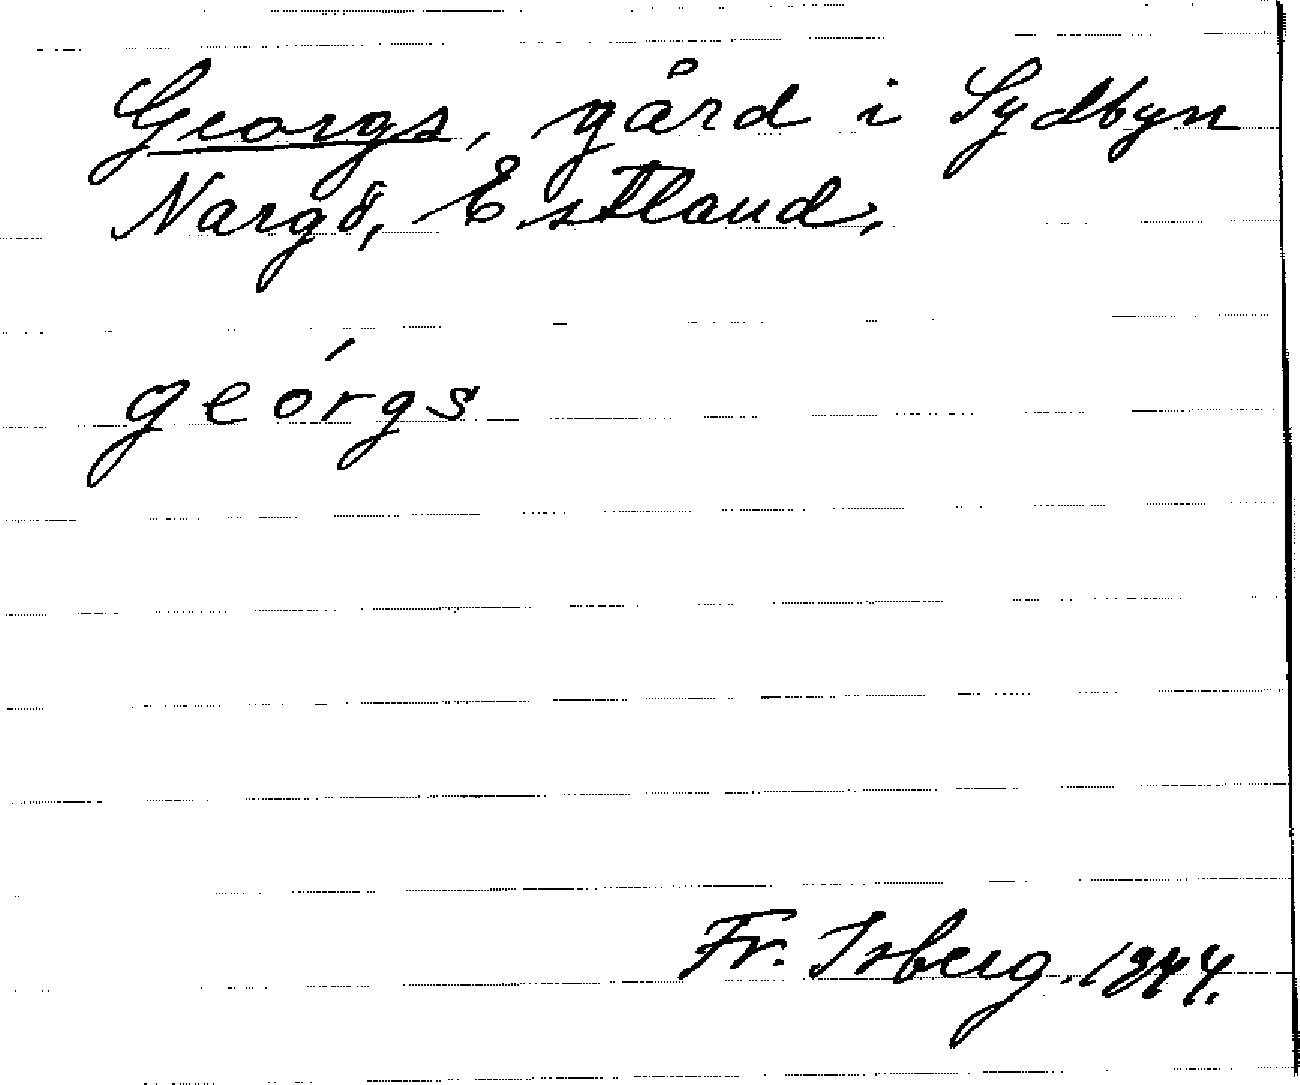 Georgs, gård i Sydbyn
Nargö, Estland,
geórgs
Fr. Isberg. 1944.